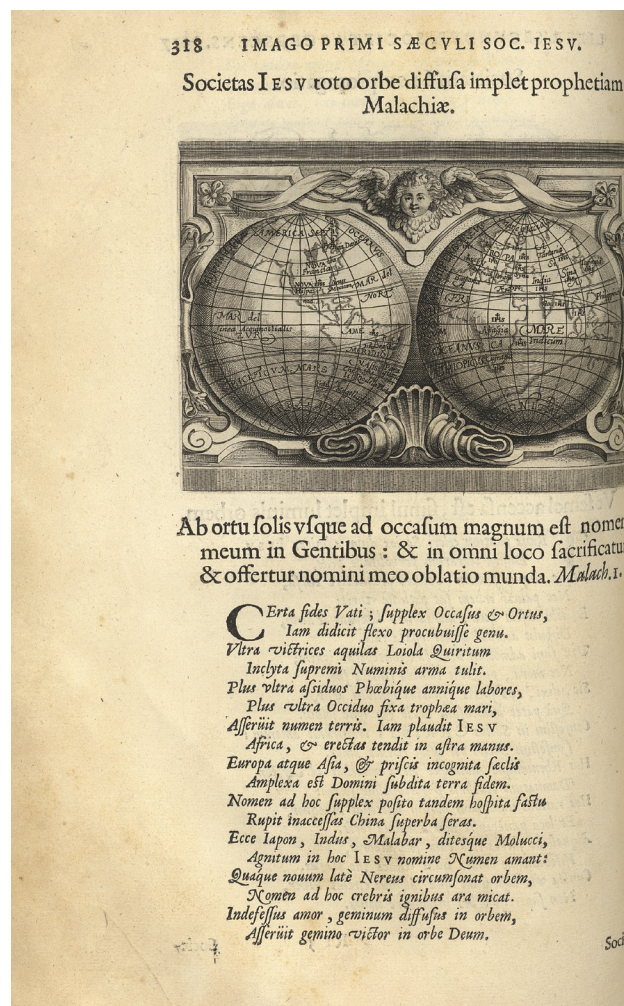 318 IMAGO PRIMI SÆCVLI SOC. IESV.
Societas IESV toto orbe diffusa implet prophetiam
Malachiæ.
AMERICA SEPT.
OCEANVS
NOVA
MAR del
NORT
MAR del
ZVR
Linea Æquinoctialis
AME
MARE
Indicum
India
OCEANVS
Ab ortu solis vsque ad occasum magnum est nomen
meum in Gentibus : & in omni loco sacrificatur
& offertur nomini meo oblatio munda. Malach.1.
CErta fides Vati ; supplex Occasus & Ortus,
Iam didicit flexo procubuisse genu.
Vltra victrices aquilas Loiola Quiritum
Inclyta supremi Numinis arma tulit.
Plus vltra assiduos Phœbique annique labores,
Plus vltra Occiduo fixa trophæa mari,
Asserüit numen terris. Iam plaudit IESV
Africa, & erectas tendit in astra manus.
Europa atque Asia, & priscis incognita sæclis
Amplexa est Domini subdita terra fidem.
Nomen ad hoc supplex posito tandem hospita fastu
Rupit inaccessas China superba seras.
Ecce Iapon, Indus, Malabar, ditesque Molucci,
Agnitum in hoc IESV nomine Numen amant:
Quaque nouum latè Nereus circumsonat orbem,
Nomen ad hoc crebris ignibus ara micat.
Indefessus amor, geminum diffusus in orbem,
Asserüit gemino victor in orbe Deum.
Soci